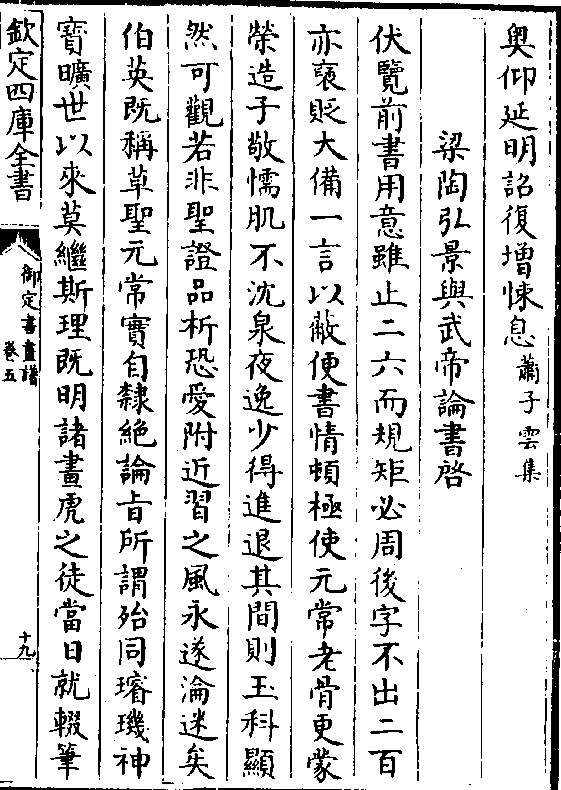 奥仰延明詔復增悚息蕭子雲集
梁陶弘景與武帝論書啓
伏覽前書用意雖止二六而規矩必周後字不出二百
亦褒貶大備一言以蔽便書情頓極使元常老骨更蒙
榮造子敬懦肌不沈泉夜逸少得進退其間則玉科顯
然可觀若非聖證品析恐愛附近習之風永遂淪迷矣
伯英既稱草聖元常實自隸絶論旨所謂殆同璿璣神
寶曠世以來莫繼斯理既明諸畫虎之徒當日就輟筆
欽定四庫全書
御定書畫譜
卷五
十九